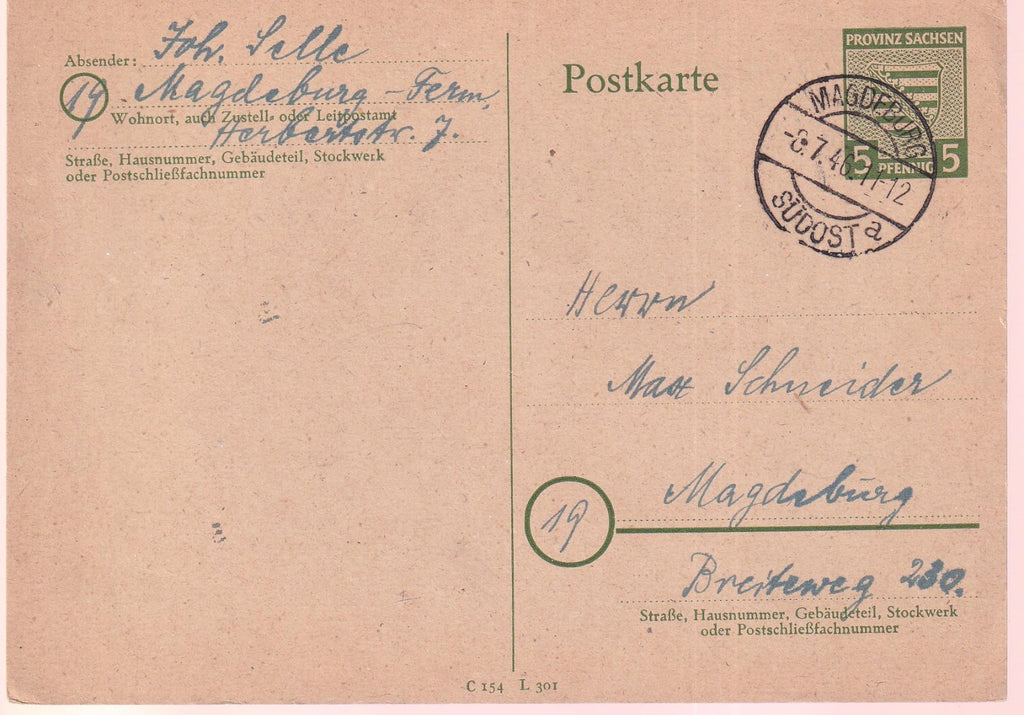 Absender: Joh. Selle
19 Magdeburg-Ferm.
Wohnort, auch Zustell- oder Leitpostamt
Herbertstr. 7.
Straße, Hausnummer, Gebäudeteil, Stockwerk
oder Postschließfachnummer
Postkarte
PROVINZ SACHSEN
5 PFENNIG 5
MAGDEBURG
-8.7.46.11-12
SÜDOST a
Herrn
Max Schneider
Magdeburg
19
Breiteweg 230.
Straße, Hausnummer, Gebäudeteil, Stockwerk
oder Postschließfachnummer
C 154 L 301